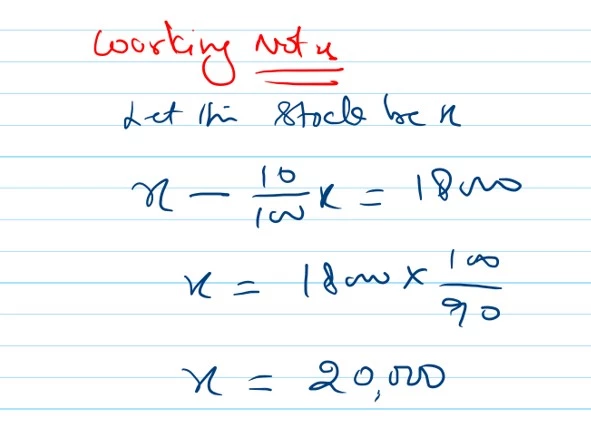 Working Notes
Let the Stock be x
x - 10/100 x = 18000
x = 18000 × 100/90
x = 20,000